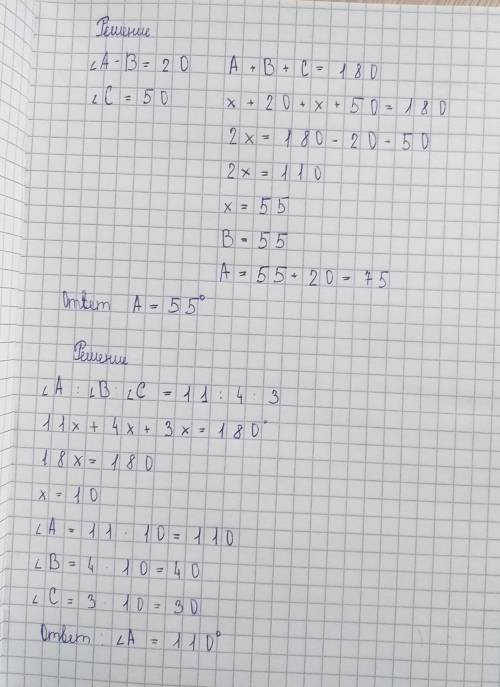 Решение
∠A - B = 20
A + B + C = 180
∠C = 50
x + 20 + x + 50 = 180
2x = 180 - 20 - 50
2x = 110
x = 55
B = 55
A = 55 + 20 = 75
Ответ A = 55°
Решение
∠A : ∠B : ∠C = 11 : 4 : 3
11x + 4x + 3x = 180°
18x = 180
x = 10
∠A = 11 · 10 = 110
∠B = 4 · 10 = 40
∠C = 3 · 10 = 30
Ответ : ∠A = 110°